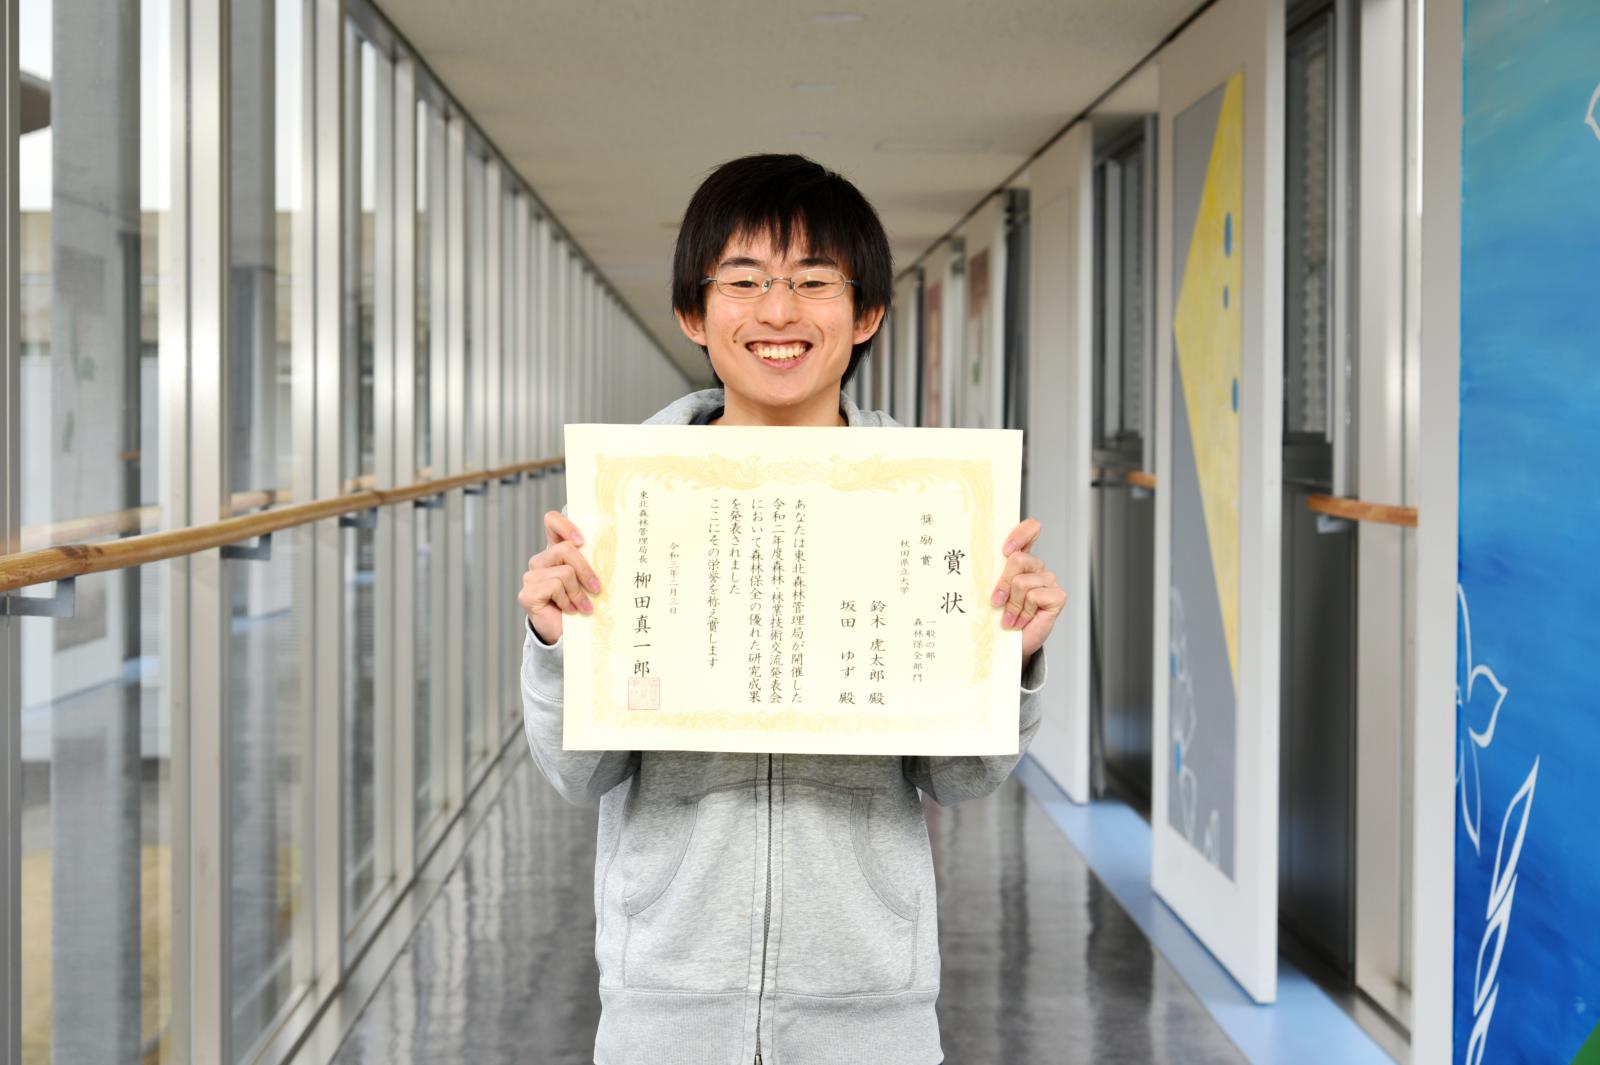 賞状
奨励賞
一般の部
森林保全部門
秋田県立大学
鈴木 虎太郎 殿
坂田 ゆず 殿
あなたは東北森林管理局が開催した
令和二年度森林・林業技術交流発表会
において森林保全の優れた研究成果
を発表されました
ここにその栄誉を称え賞します
令和三年二月三日
東北森林管理局長 柳田真一郎